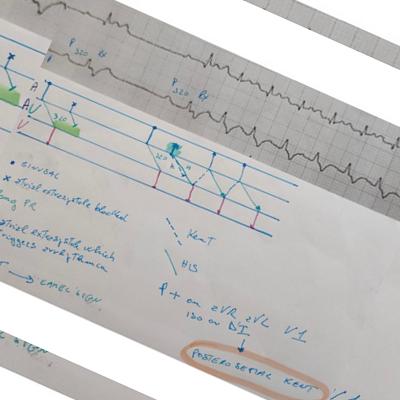 P
320
P
320
A
AV
V
320
320
• SINUSAL
x atrial extrasystole blocked
long PR
atrial extrasystole which
triggers arrhythmia
KENT
HIS
P + on aVR aVL V1
ISO on DI
POSTERO SEPTAL KENT